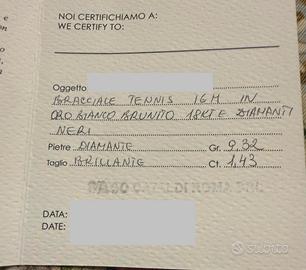 NOI CERTIFICHIAMO A:
WE CERTIFY TO:
Oggetto
BRACCIALE TENNIS 16M IN
ORO BIANCO BRUNITO 18KT E DIAMANTI
NERI
Pietre DIAMANTE Gr. 9,32
Taglio BRILLANTE Ct. 1,43
ROMA
DATA:
DATE:
subito